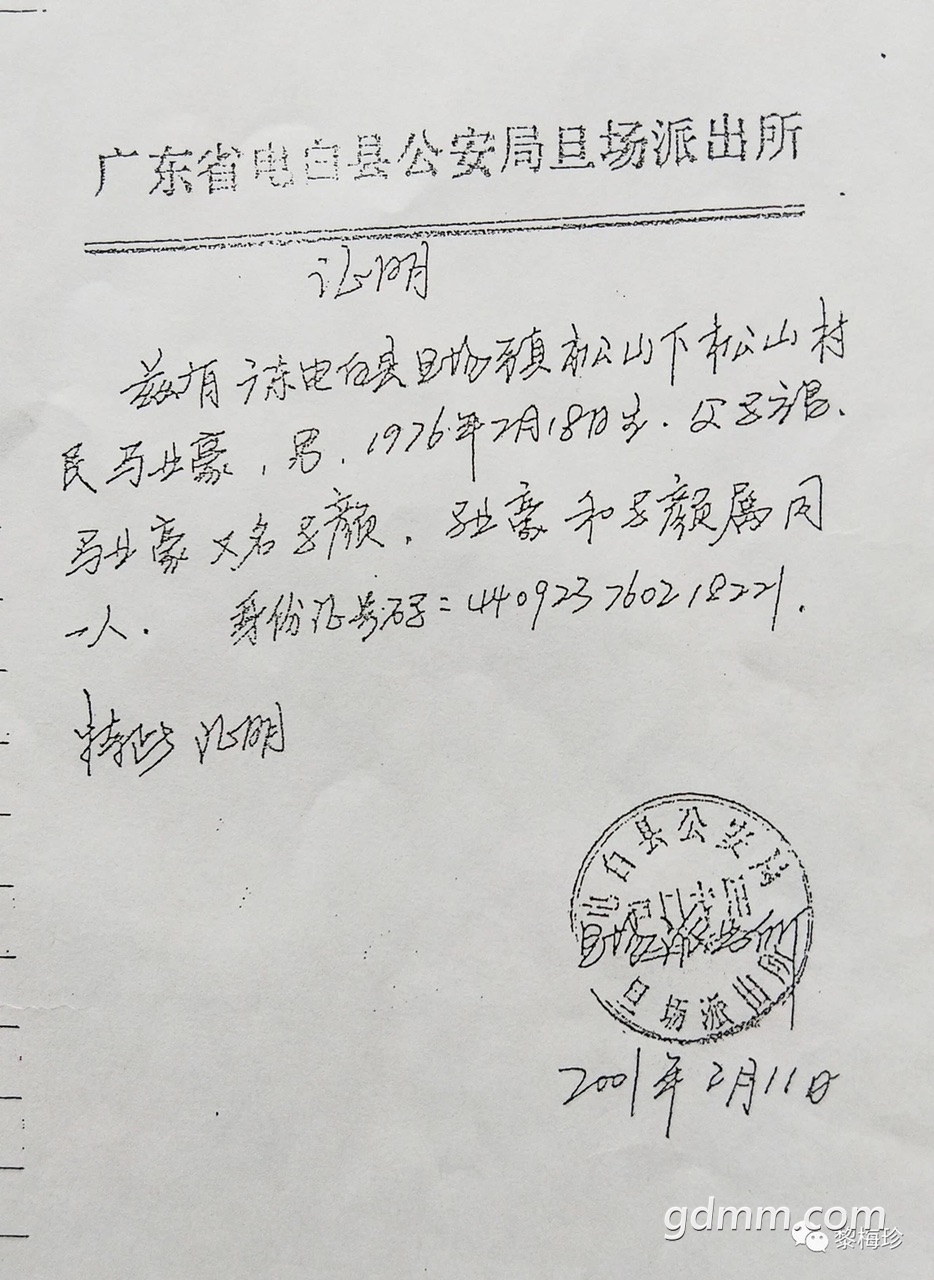 广东省电白县公安局旦场派出所
证明
兹有广东电白县旦场镇松山下松山村
民马业豪，男，1976年2月18日生．父
马业豪又名马颜，马业豪和马颜属同
一人．身份证号码：440923760218221．
特此证明
电白县公安局
户口专用
旦场派出所
旦场派出所
2001年2月11日
gdmm.com
黎梅珍